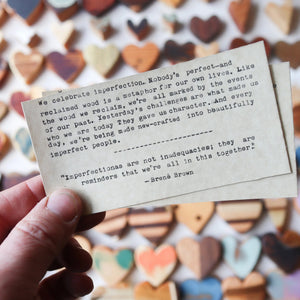 We celebrate imperfection. Nobody's perfect—and
reclaimed wood is a metaphor for our own lives. Like
the wood we reclaim, we're all marked by the events
of our past. Yesterday's challenges are what made us
who we are today They gave us character. And every
day, we're being made new—crafted into beautifully
imperfect people.
------------------------
"Imperfections are not inadequacies; they are
reminders that we're all in this together."
—Brené Brown